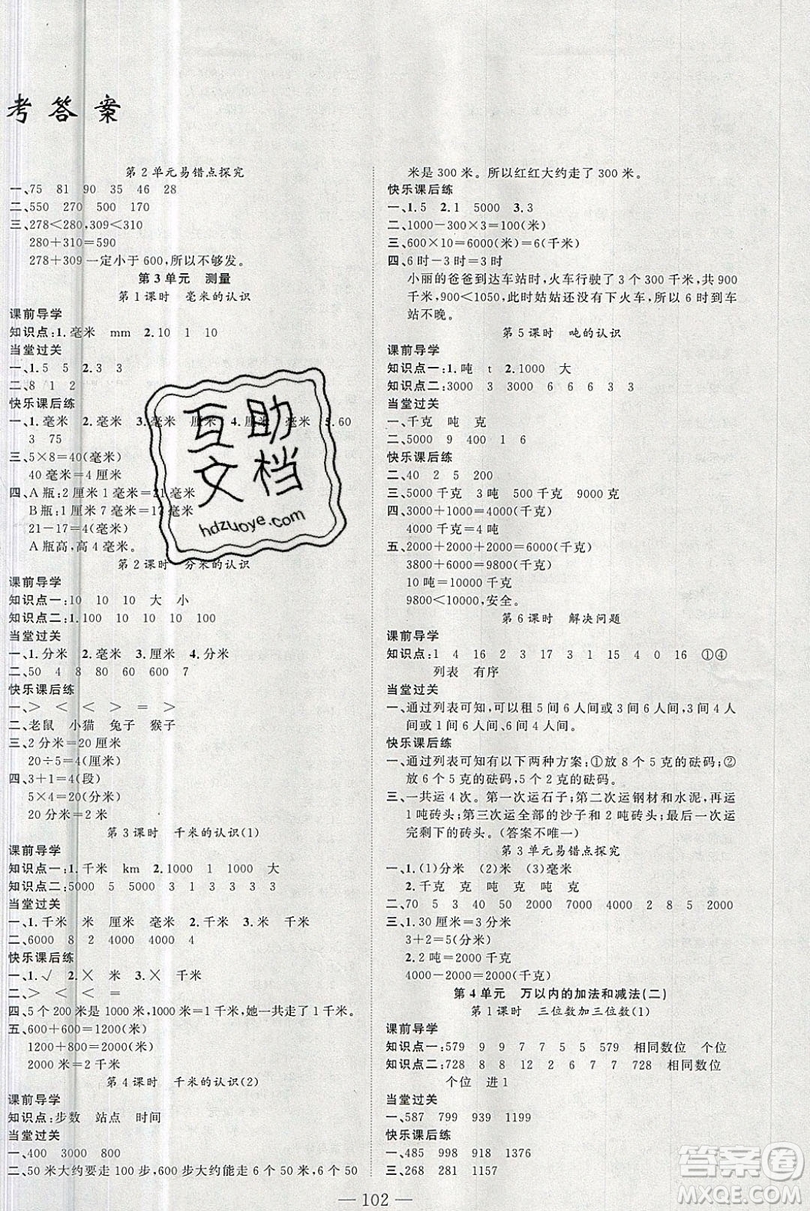 考答案
第2单元易错点探究
一、75 81 90 35 46 28
二、550 270 500 150
三、278<280,309<310
280+310=590
278+309一定小于600,所以不够发。
第3单元 测量
第1课时 毫米的认识
课前导学
知识点:1.毫米 mm 2.10 1 10
当堂过关
一、1.5 5 2.3 3
二、8 1 2
快乐课后练
一、1.毫米 2.厘米 3.毫米 厘米 4.毫米 5.60
3 75
三、5×8=40(毫米)
40毫米=4厘米
四、A瓶:2厘米1毫米=21毫米
B瓶:1厘米7毫米=17毫米
21-17=4(毫米)
A瓶高,高4毫米。
第2课时 分米的认识
课前导学
知识点一:10 10 10 大 小
知识点二:100 10 10 10 1
当堂过关
一、1.分米 2.厘米 3.毫米 4.分米
二、50 4 8 80 60 7
快乐课后练
一、> < < > = >
二、老鼠 小猫 兔子 猴子
三、2分米=20厘米
20÷5=4(厘米)
四、3+1=4(段)
5×4=20(分米)
20分米=2米
第3课时 千米的认识(1)
课前导学
知识点一:1.千米 km 2.1000 1 1000 大
知识点二:5 5000 5000 1 3 3 3 3
当堂过关
一、1.千米 米 厘米 毫米 2.千米 3.千米
二、6000 8 2 4000 4000
快乐课后练
一、1.√ 2.✕ 米 3.✕ 千米
二、> < < =
四、5个200米是1000米,1000米=1千米,她一共走了1千米。
五、600+600=1200(米)
1200+800=2000(米)
2000米=2千米
第4课时 千米的认识(2)
课前导学
知识点:步数 站点 时间
当堂过关
一、400 3000 800
二、50米大约要走100步,600步大约能走6个50米,6个50
米是300米。所以红红大约走了300米。
快乐课后练
一、1.5 2.1 5000 3.3
二、1000-300-200=500(米)
三、600×10=6000(米)
四、6时-3时=3时
小丽的爸爸到达车站时,火车行驶了3个300千米,共900
千米。900<1050,此时姑姑还没有下火车,6时到车
站不晚。
第5课时 吨的认识
课前导学
知识点一:1.吨 t 2.1000 大
知识点二:3000 3 3000 6 6000 6
当堂过关
一、千克 吨 克
二、5000 9 4000 1 6000
快乐课后练
二、40 2 5 200
三、5000千克 3吨 500千克 500克
四、6000+1000+2000=9000(千克)
9000千克=9吨
五、2000+1800=3800(千克)
3800+6000=9800(千克)
10吨=10000千克
9800<10000,安全。
第6课时 解决问题
课前导学
知识点:1 4 16 2 3 17 3 1 15 4 0 16 ①④
列表 有序
当堂过关
一、通过列表可知,可以租5间6人间或3间6人间、2间4人
间或1间6人间、4间4人间。
快乐课后练
一、通过列表可知有以下两种方案:①放8个5克的砝码;②
放6个5克的砝码,5个2克的砝码。
三、一共运4次。第一次运石子;第二次运钢材和水泥,可运
1吨砖头;第三次运全部的沙子和1吨砖头;最后一次
运完剩下的砖头。(答案不唯一)
第3单元易错点探究
一、1.(1)分米 (2)毫米
2.千克 克 吨 克 吨
二、70 5 3 40 50 2000 7000 5 4000
三、1.30厘米=3分米
3+2=5(分米)
2.4吨=4000千克
4000-2000=2000(千克)
第4单元 万以内的加法和减法(二)
第1课时 三位数加三位数(1)
课前导学
知识点一:579 9 9 7 7 5 5 579 相同数位 个位
知识点二:728 8 8 12 2 1 7 728 相同数位
个位 进1
当堂过关
一、587 799 939 909
快乐课后练
一、485 998 918 1376
三、268 281 1157
— 102 —
互助
文档
hdzuoye.com
答案圈
MXQE.COM